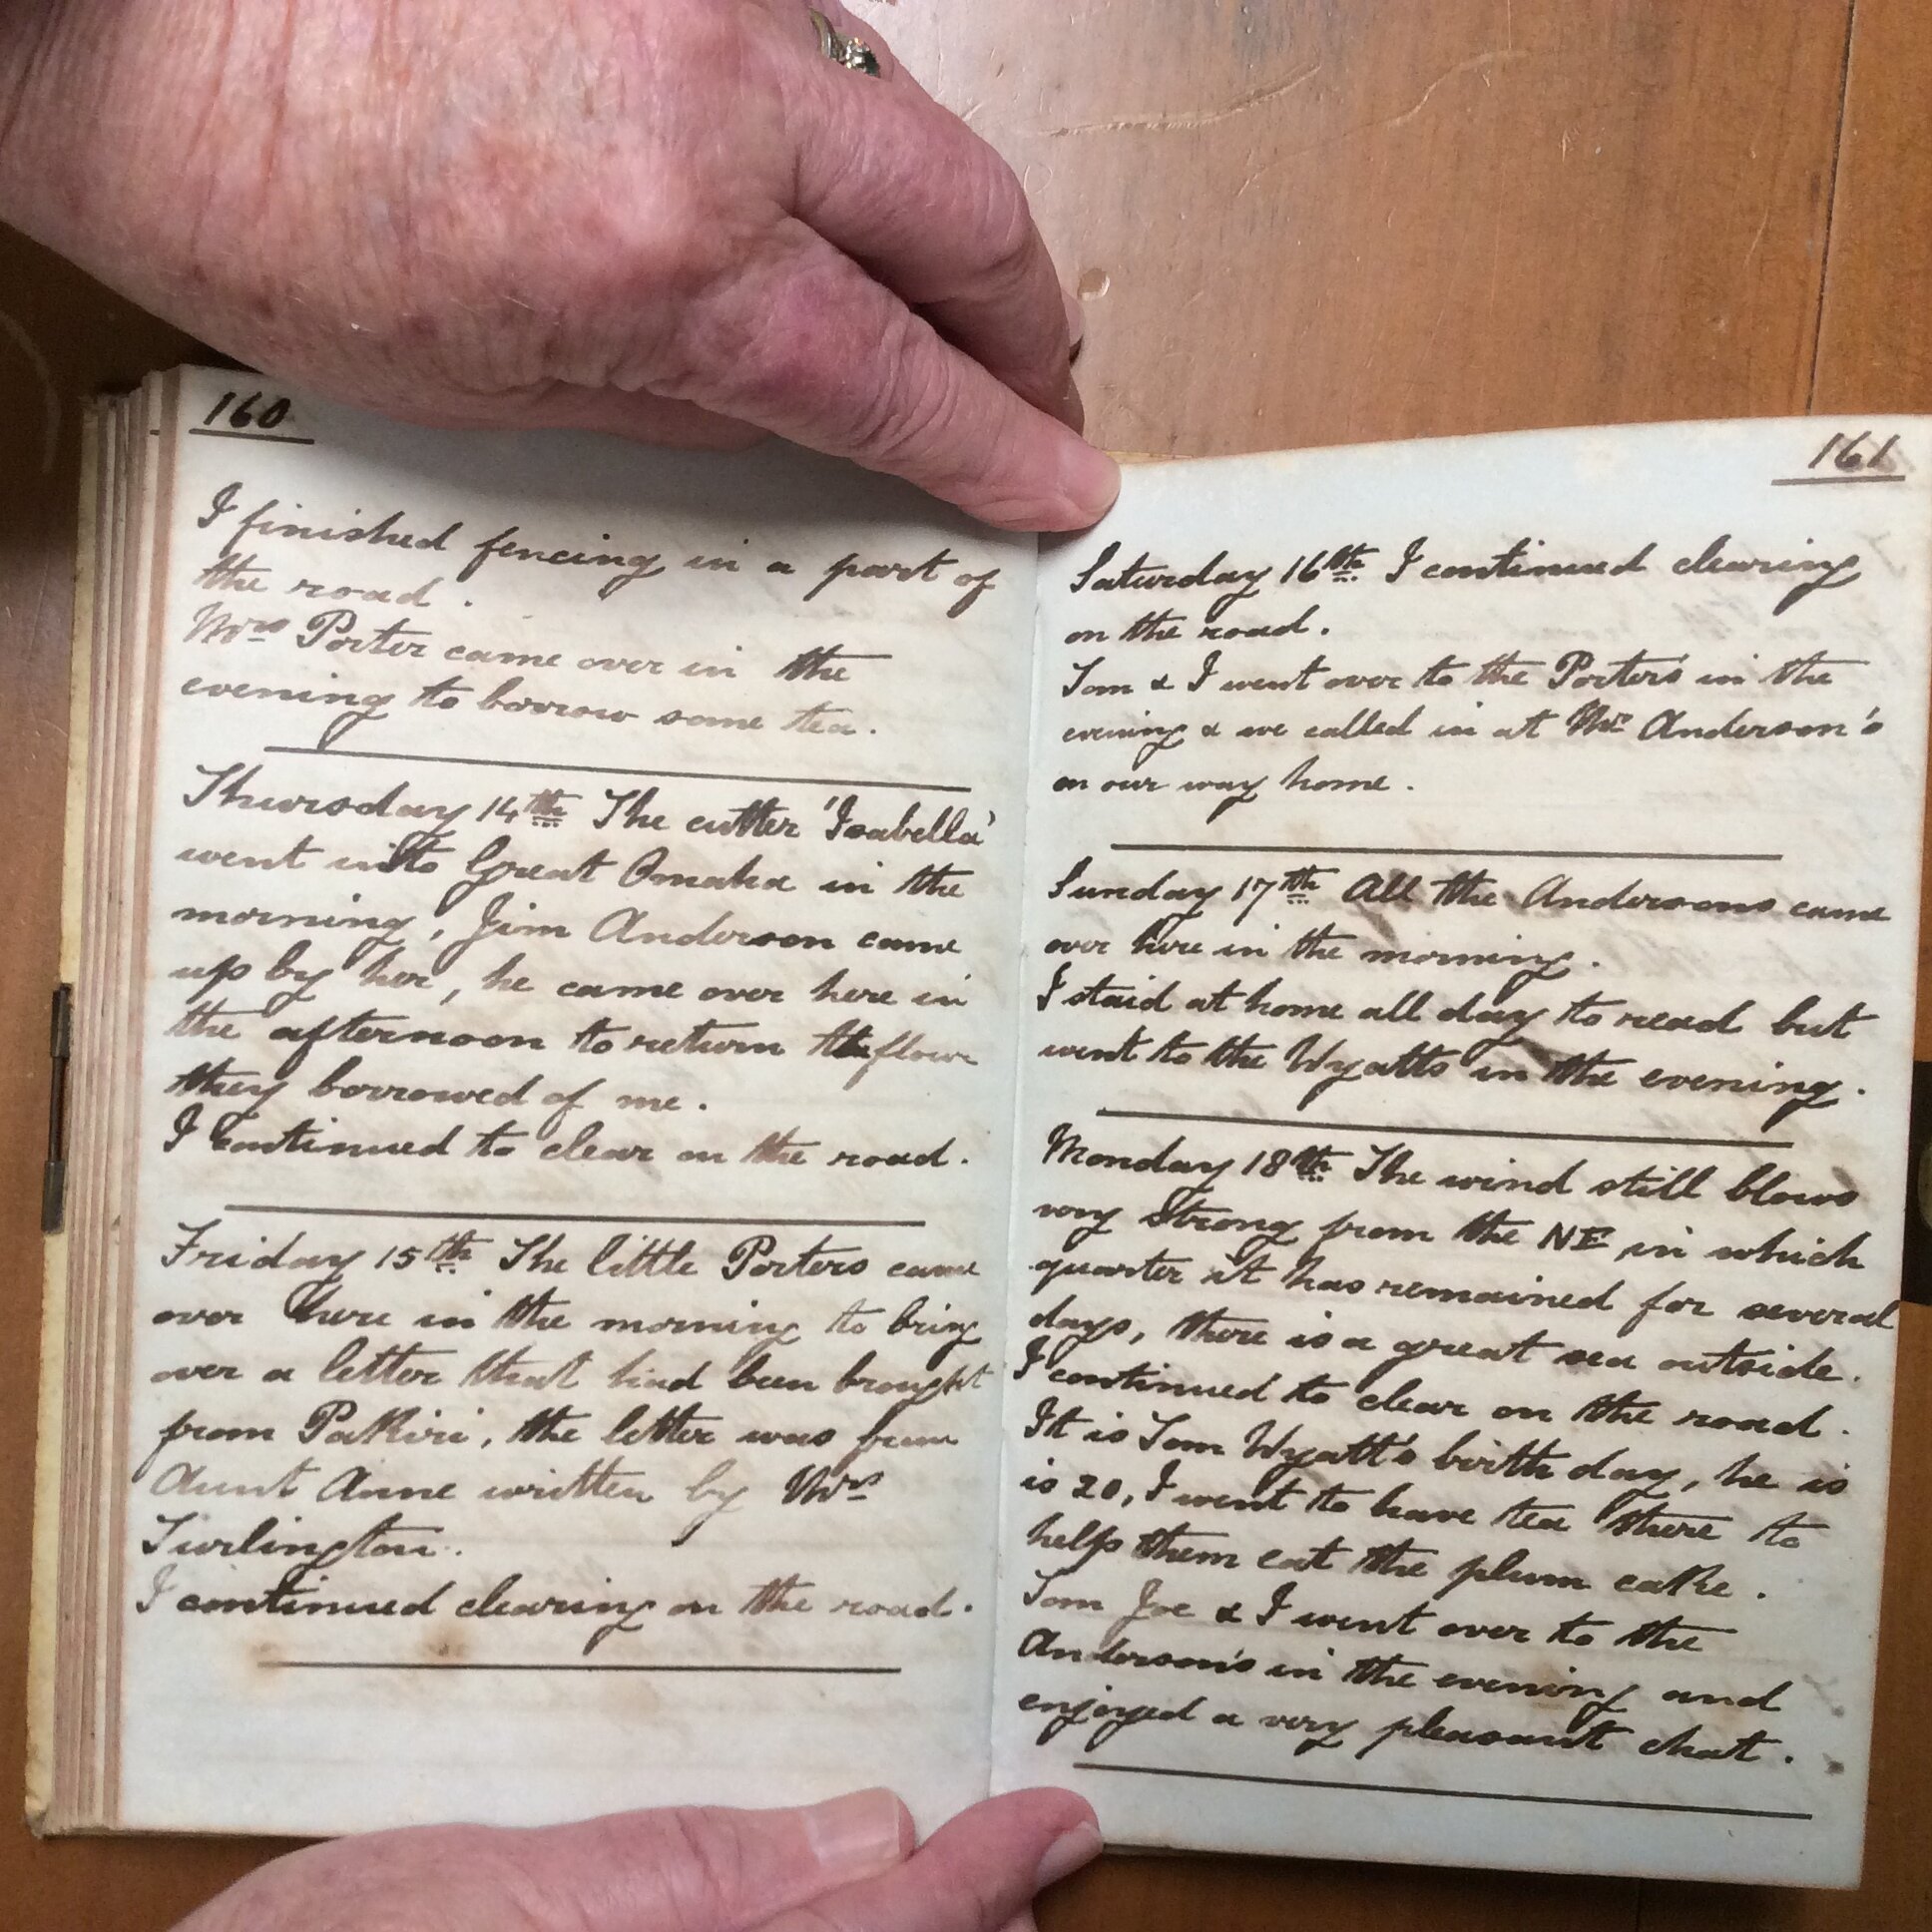 160
I finished fencing in a part of
the road.
Mrs Porter came over in the
evening to borrow some tea.
Thursday 14th The cutter 'Isabella'
went into Great Omaha in the
morning, Jim Anderson came
up by her, he came over here in
the afternoon to return the flour
they borrowed of me.
I continued to clear on the road.
Friday 15th The little Porters came
over here in the morning to bring
over a letter that had been brought
from Pakiri, the letter was from
Aunt Anne written by Mrs
Turlington.
I continued clearing on the road.
161
Saturday 16th I continued clearing
on the road.
Tom & I went over to the Porters in the
evening & we called in at Mr Anderson's
on our way home.
Sunday 17th All the Andersons came
over here in the morning.
I staid at home all day to read but
went to the Wyatts in the evening.
Monday 18th The wind still blows
very strong from the NE in which
quarter it has remained for several
days, there is a great sea outside.
I continued to clear on the road.
It is Tom Wyatt's birth day, he is
is 20, I went to have tea there to
help them eat the plum cake.
Tom Joe & I went over to the
Anderson's in the evening and
enjoyed a very pleasant chat.